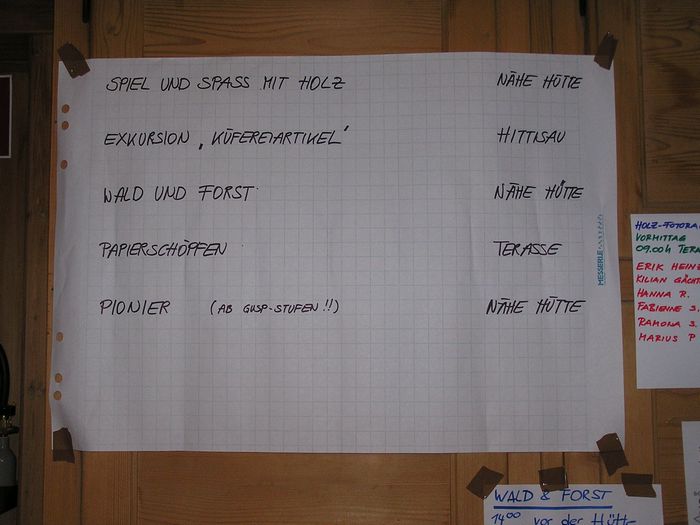 SPIEL UND SPASS MIT HOLZ NÄHE HÜTTE
EXKURSION „KÜFEREIARTIKEL" HITTISAU
WALD UND FORST NÄHE HÜTTE
PAPIERSCHÖPFEN TERASSE
PIONIER (AB GUSP-STUFEN!!) NÄHE HÜTTE
MESSERLE
HOLZ-FOTORA
VORMITTAG
09.00h TERA
ERIK HEINZ
KILIAN GÄCHT
HANNA R.
FABIENNE S.
RAMONA S.
MARIUS P
WALD & FORST
14°° vor der Hütt